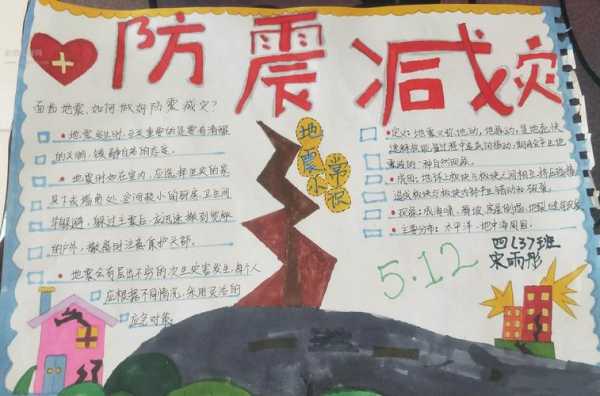 防震减灾
面对地震,如何做好防震减灾?
• 地震发生时,至关重要的是要有清醒
的头脑,镇静自若的态度。
• 地震时如在室内,应选择坚实的家
具下或墙角处,
卫生间
等躲避,躲过主震后,应迅速撤到宽敞
的户外,撤离时注意保护头部。
• 地震会有层出不穷的次生灾害发生,每个人
应根据不同情况,采用灵活的
应急对策。
地震小常识
• 定义:地震又称地动,地振动,是地壳快
速释放能量过程中造成的振动,期间会产生地
震波的一种自然现象。
• 成因:地球上板块与板块之间相互挤压碰撞
造成板块
• 主要分布:太平洋,地中海周围。
5.12
四(3)班
宋雨彤